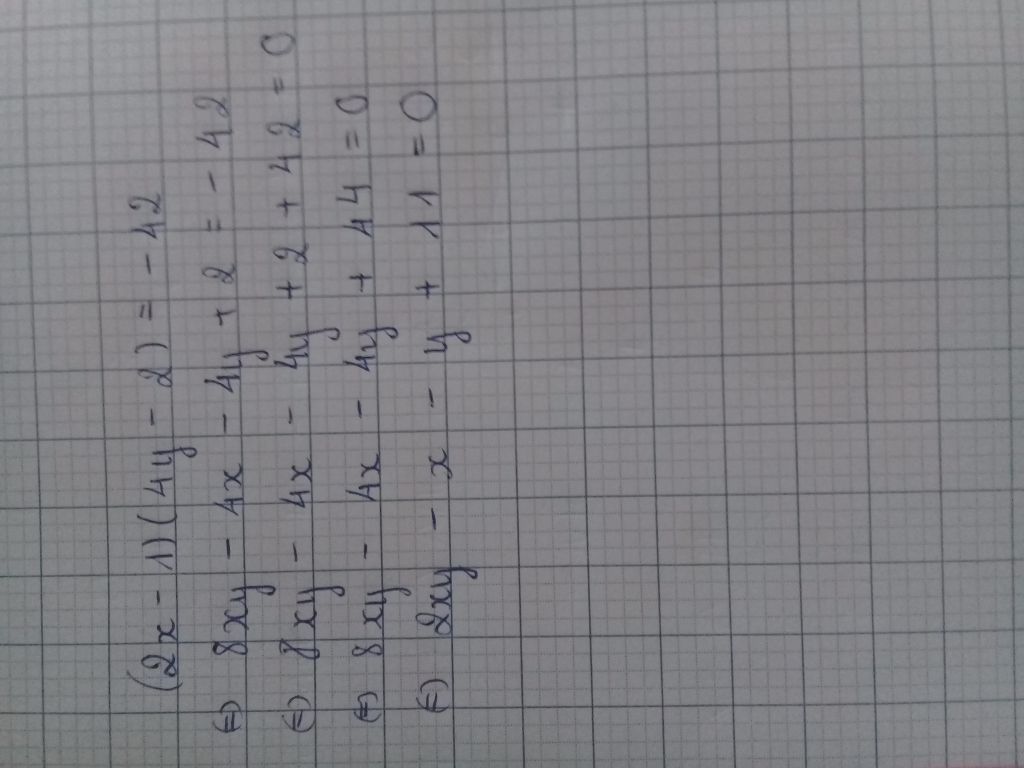 (2x - 1)(4y - 2) = - 42
(=) 8xy - 4x - 4y + 2 = - 42
(=) 8xy - 4x - 4y + 2 + 42 = 0
(=) 8xy - 4x - 4y + 44 = 0
(=) 2xy - x - y + 11 = 0